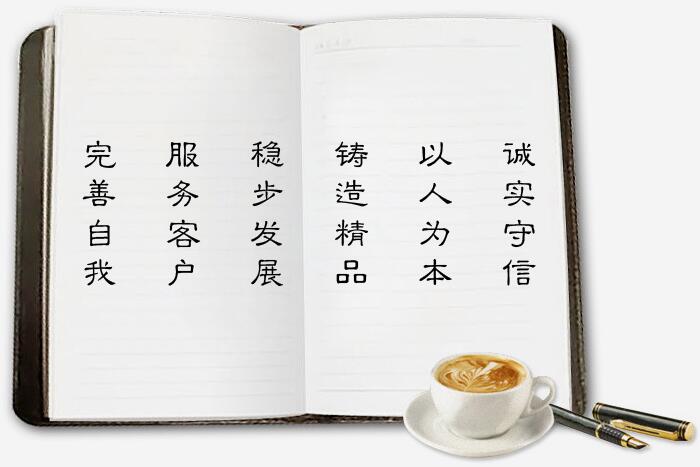 诚实守信
以人为本
铸造精品
稳步发展
服务客户
完善自我